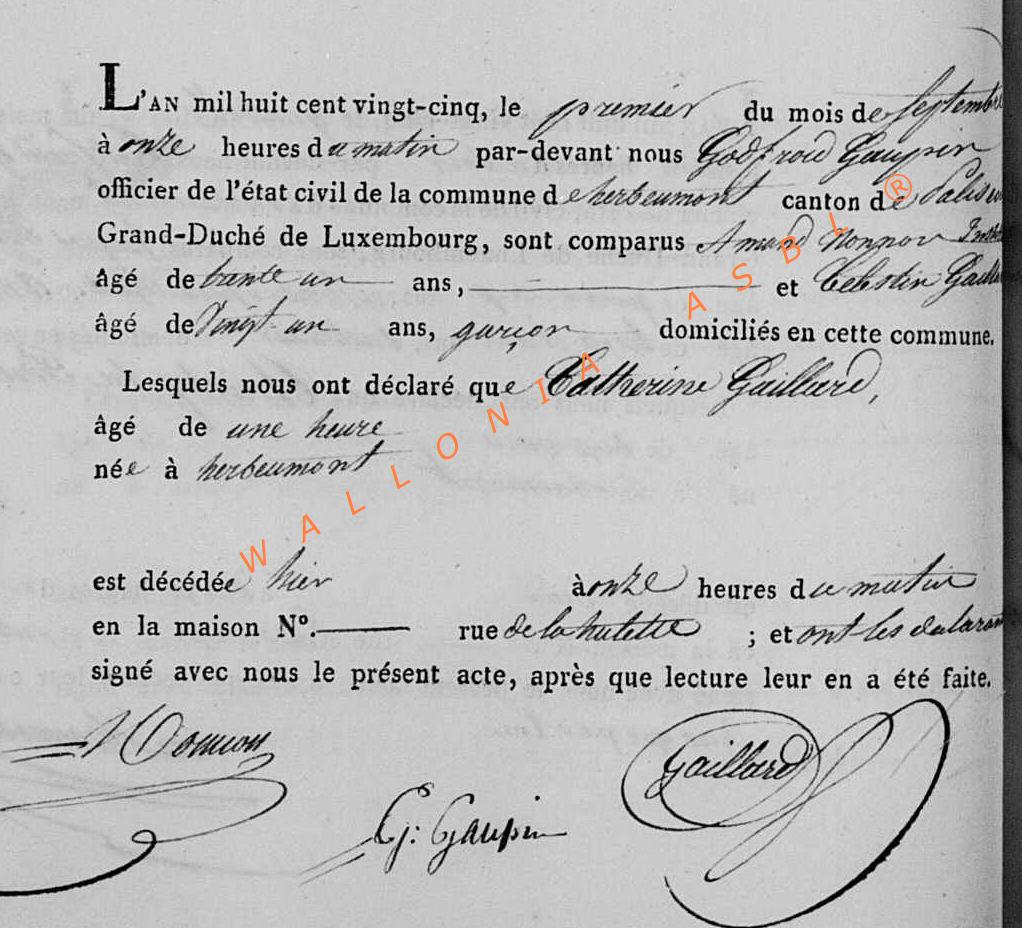 L'AN mil huit cent vingt-cinq, le premier du mois de Septembre
à onze heures du matin par-devant nous Godfroid Gaupin
officier de l'état civil de la commune de herbeumont canton de
Grand-Duché de Luxembourg, sont comparus Amand Nonnon
âgé de trente un ans, et Celestin Gaillard
âgé de Vingt un ans, garçon domiciliés en cette commune.
Lesquels nous ont déclaré que Catherine Gaillard,
âgé de une heure
née à herbeumont
est décédée hier à onze heures du matin
en la maison N°. rue de la hulette ; et ont les
signé avec nous le présent acte, après que lecture leur en a été faite.
Nonnon
Gaillard
G: Gaupin
WALLONIA ASBL ®